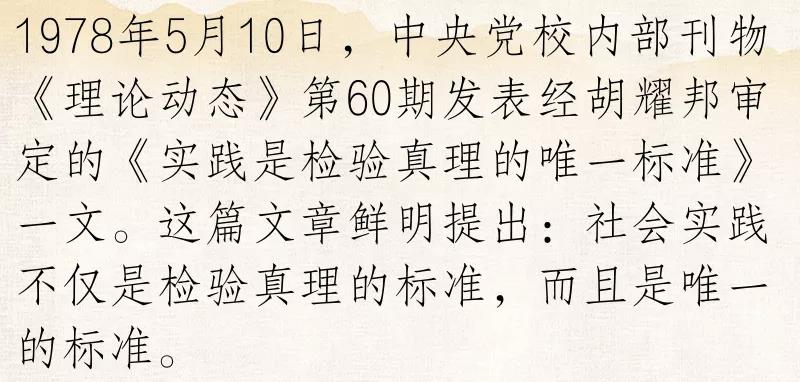 1978年5月10日，中央党校内部刊物
《理论动态》第60期发表经胡耀邦审
定的《实践是检验真理的唯一标准》
一文。这篇文章鲜明提出：社会实践
不仅是检验真理的标准，而且是唯一
的标准。